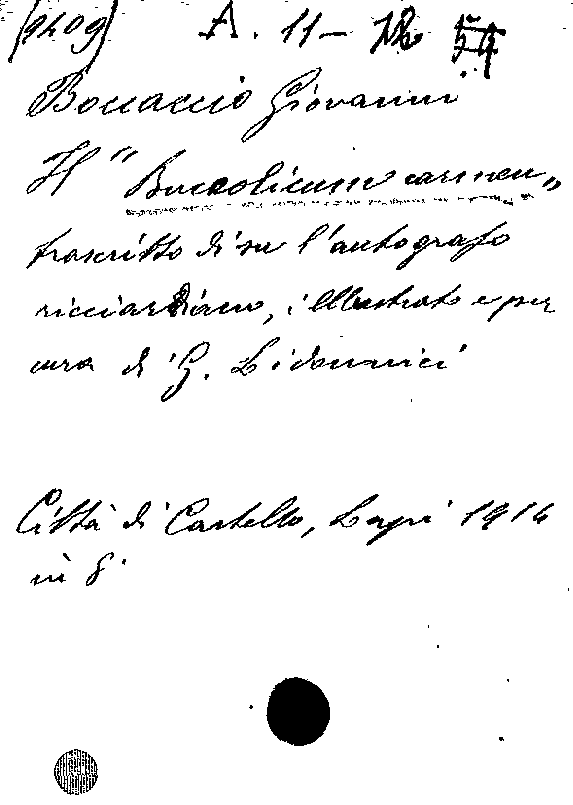 (9409) A. 11 - 54
Boccaccio Giovanni
Il "Buccolicum carmen"
trascritto di su l'autografo
riccardiano, illustrato e per
cura di G. Lidonnici
Città di Castello, Lapi 1914
in 8°